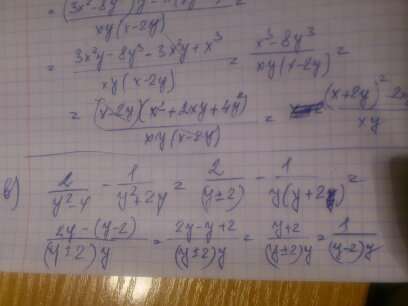 = (3x²-8y
xy(x-2y) =
= 3x²y-8y³-3x²y+x³ / xy(x-2y) = x³-8y³ / xy(x-2y) =
= (x-2y)(x²+2xy+4y²) / xy(x-2y) = (x+2y)²-2x / xy
в) 2 / y²-4 - 1 / y²+2y = 2 / (y±2) - 1 / y(y+2) =
2y-(y-2) / (y±2)y = 2y-y+2 / (y±2)y = y+2 / (y±2)y = 1 / (y-2)y